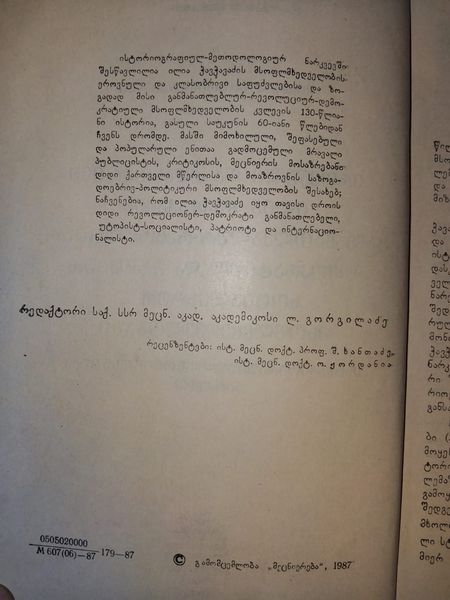 ისტორიოგრაფიულ-მეთოდოლოგიურ ნარკვევში
შესწავლილია ილია ჭავჭავაძის მსოფლმხედველობის
ეროვნული და კლასობრივი საფუძვლებისა და ზო-
გადად მისი განმანათლებლურ-რევოლუციურ-დემო-
კრატიული მსოფლმხედველობის კვლევის 130-წლია-
ნი ისტორია, გასული საუკუნის 60-იანი წლებიდან
ჩვენს დრომდე. მასში მიმოხილული, შეფასებული
და პოპულარული ენითაა გადმოცემული მრავალი
პუბლიცისტის, კრიტიკოსის, მეცნიერის მოსაზრებანი
დიდი ქართველი მწერლისა და მოაზროვნის საზოგა-
დოებრივ-პოლიტიკური მსოფლმხედველობის შესახებ;
ნაჩვენებია, რომ ილია ჭავჭავაძე იყო თავისი დროის
დიდი რევოლუციონერ-დემოკრატი განმანათლებელი,
უტოპისტ-სოციალისტი, პატრიოტი და ინტერნაციო-
ნალისტი.
რედაქტორი საქ. სსრ მეცნ. აკად. აკადემიკოსი ლ. გორგილაძე
რეცენზენტები: ისტ. მეცნ. დოქტ. პროფ. შ. ხანთაძე,
ისტ. მეცნ. დოქტ. ო. ჟორდანია
0505020000
М 607(06)—87
179—87
© გამომცემლობა „მეცნიერება“, 1987